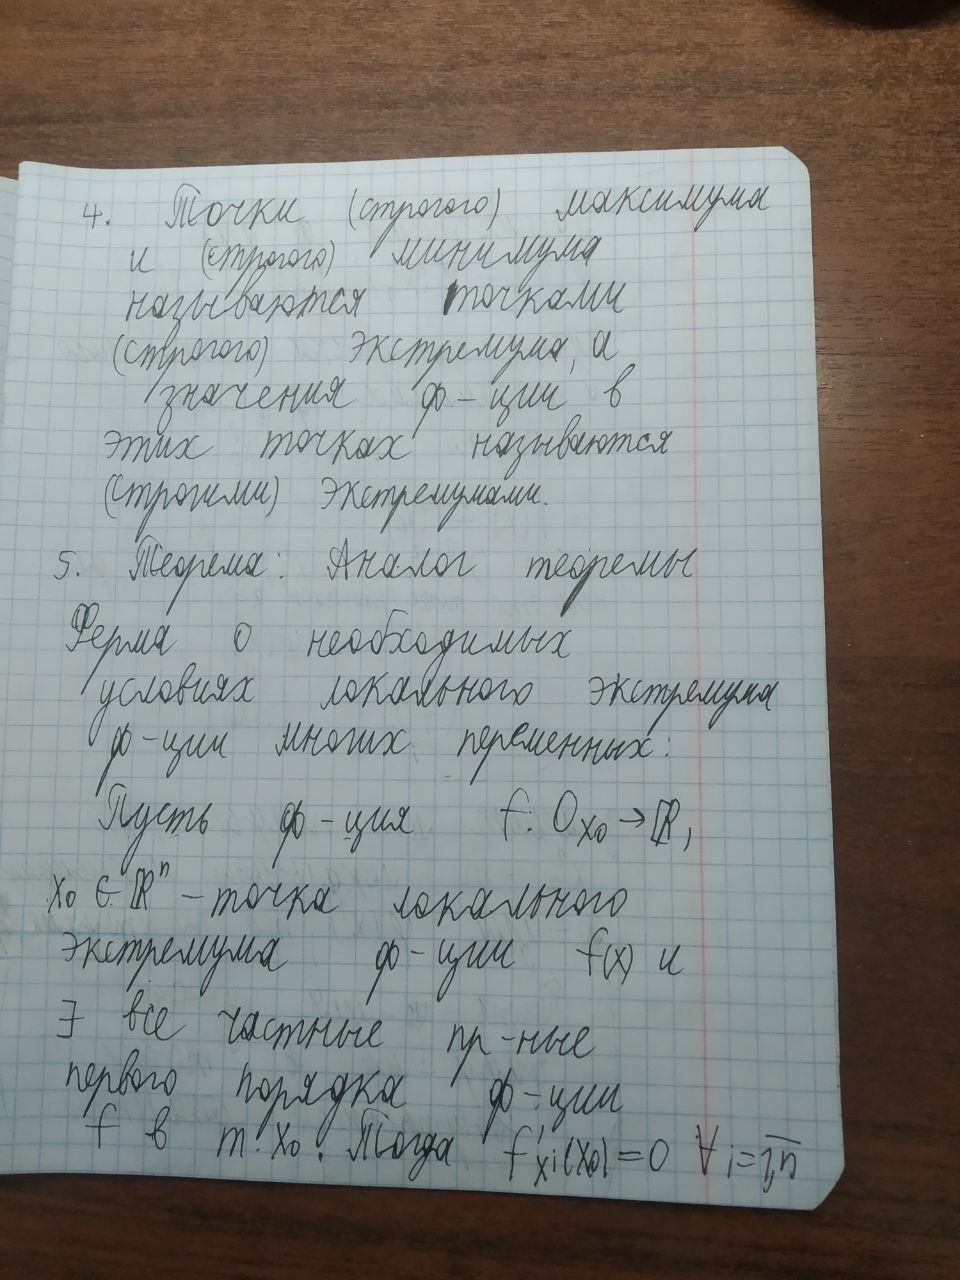 4. Точки (строгого) максимума
и (строгого) минимума
называются точками
(строгого) экстремума, а
значения ф-ции в
этих точках называются
(строгими) экстремумами.
5. Теорема: Аналог теоремы
Ферма о необходимых
условиях локального экстремума
ф-ции многих переменных:
Пусть ф-ция f: O_{x₀} → ℝ,
x₀ ∈ ℝⁿ – точка локального
экстремума ф-ции f(x) и
∃ все частные пр-ные
первого порядка ф-ции
f в т. x₀. Тогда f'_{xi}(x₀) = 0 ∀ i = \overline{1,n}